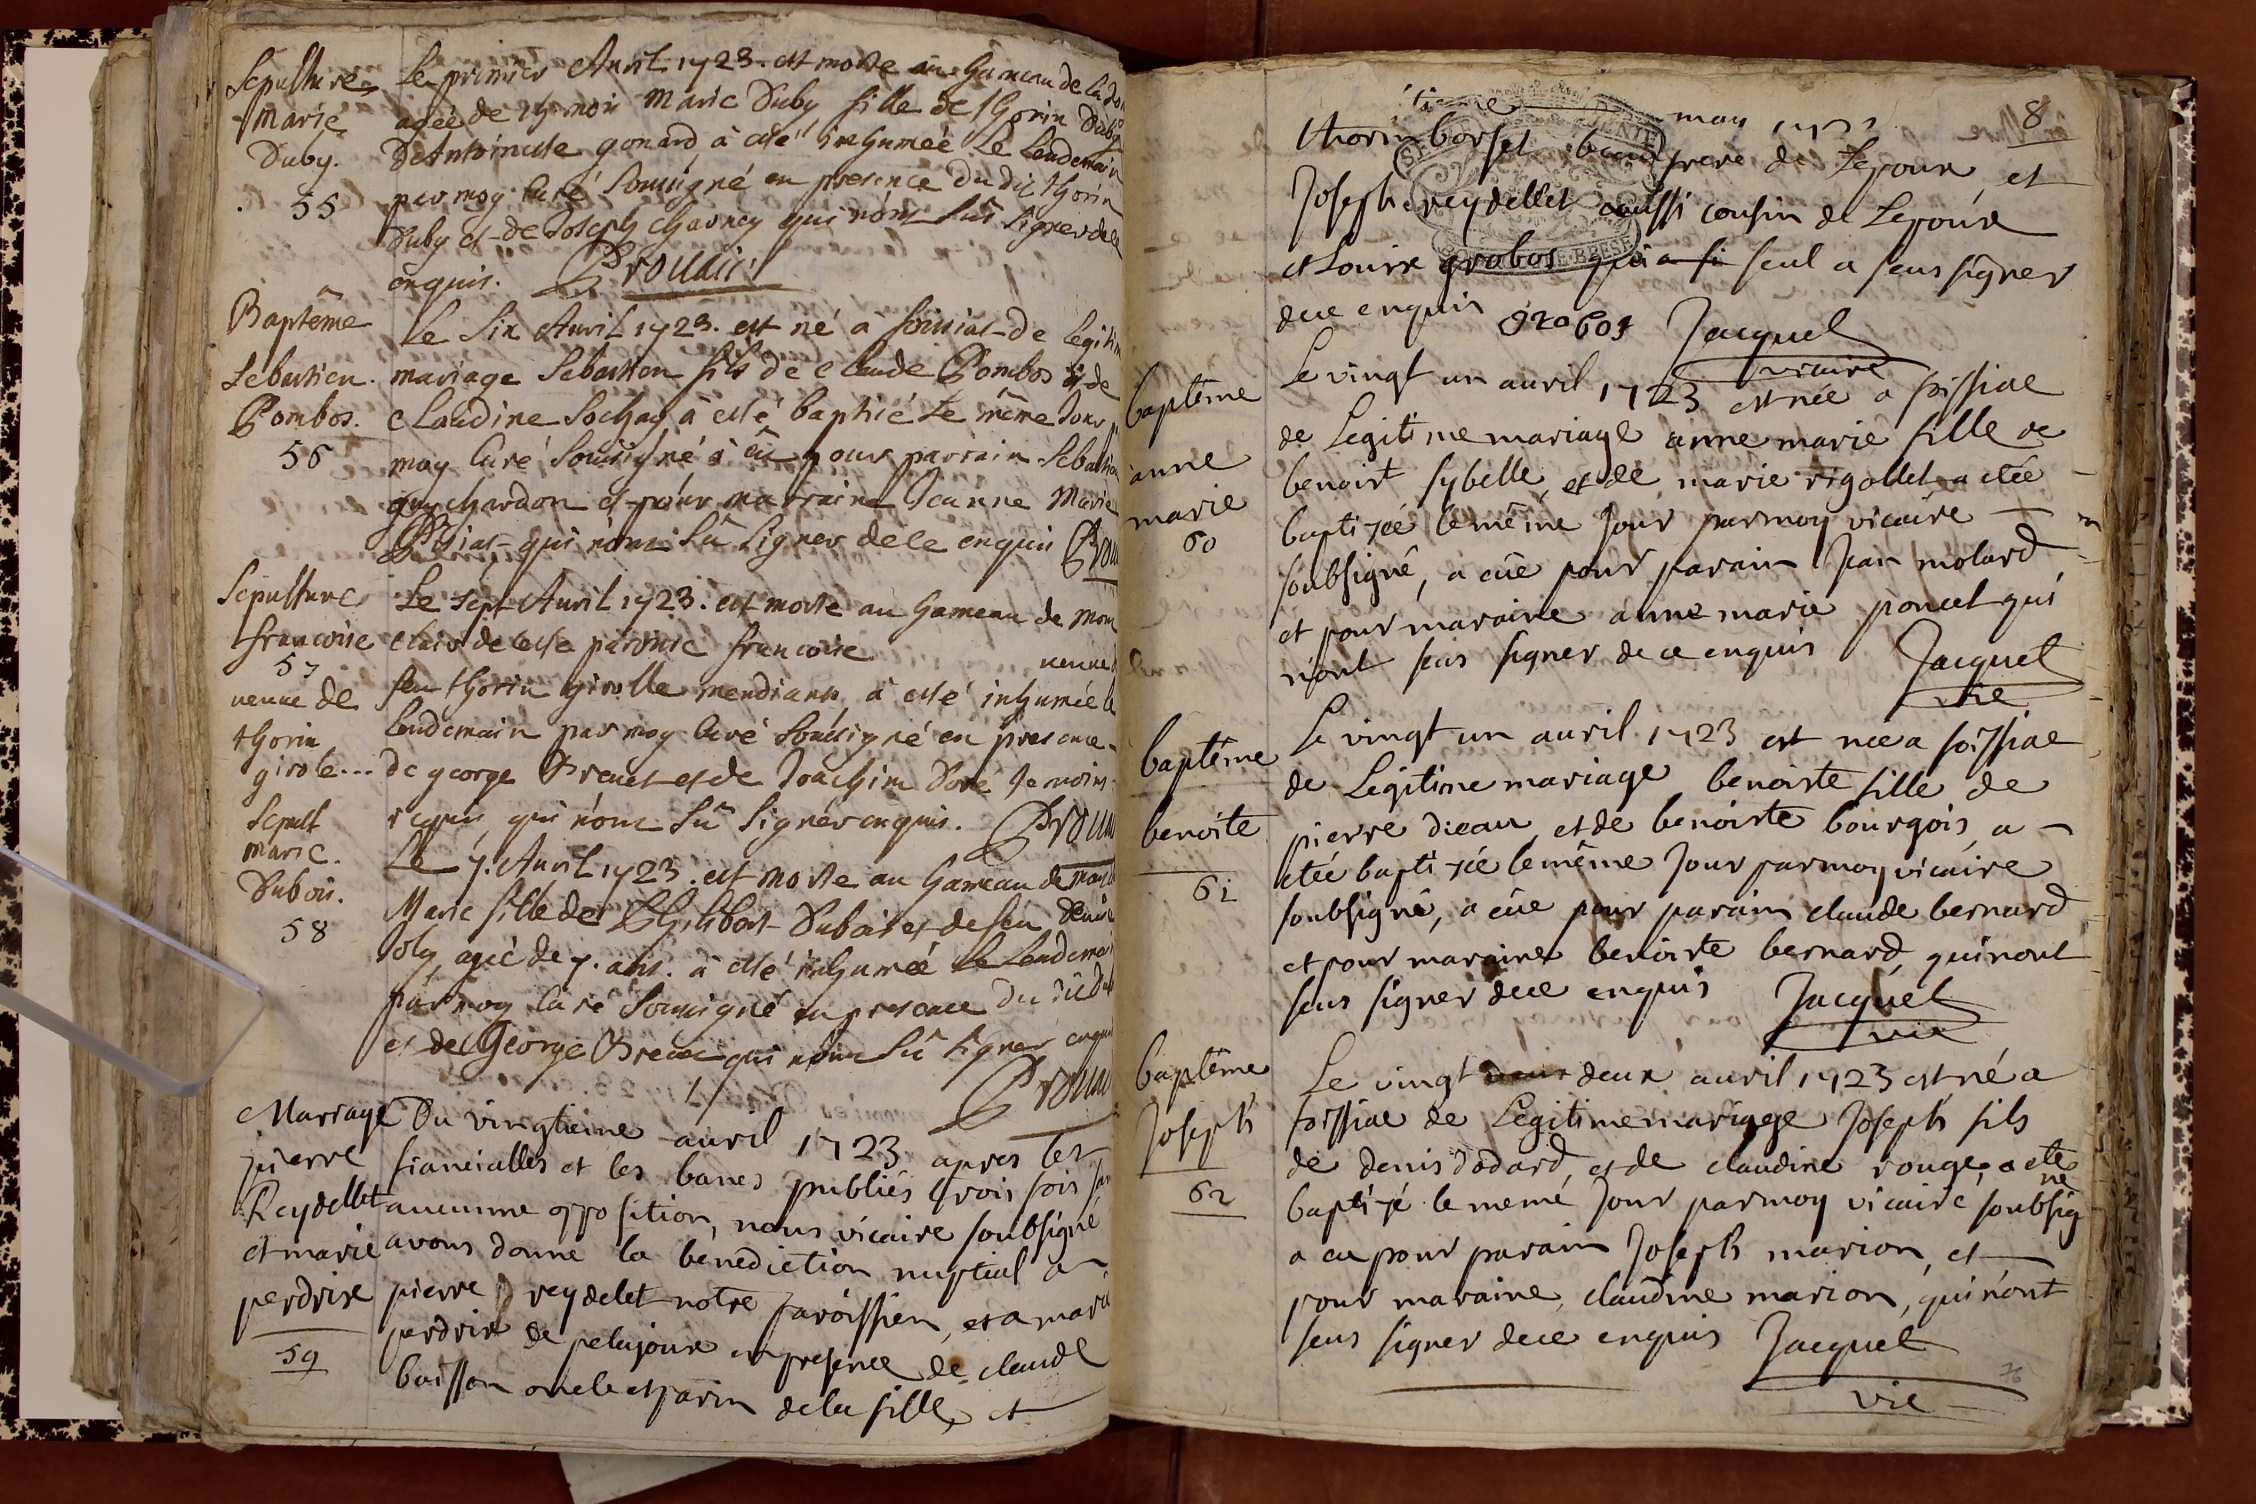 Sepulture
Marie
Duby.
55
Le premier Avril 1723. est morte au hameau de la
agée de mois Marie Duby fille de thorin Duby
D'Antoinette gonard à esté inhumée Le Lendemain
par moy Curé Soussigné en presence du dit thorin
Duby et de Joseph charney qui n'ont Sû signer de ce
enquis.
Baptême
Sebastien
Pombos.
56
Le Six Avril 1723. est né a soissiat de Legitim
mariage Sebastien fils de Claude Pombos et de
Claudine Sochay à esté baptisé Le même Jour
moy Curé Soussigné à eû pour parrain Sebastien
guychardon et pour marraine Jeanne Marie
qui n'ont Sû Signer de ce enquis
Sepulture
francoise
57
veuve de
thorin
girole...
Le sept Avril 1723. est morte au hameau de Mon
clair de cette paroisse francoise veuve
feu thorin girolle mendiante à esté inhumée le
lendemain par moy Curé Soussigné en presence
de george Brevet et de Joachim Doré temoins
requis qui n'ont Sû Signer enquis.
Sepult
Marie.
Dubois.
58
Le 7. Avril 1723. est morte au hameau de
Marie fille de Philibert Dubois et de feu Denise
Joly agée de 7. ans. à esté inhumée Le Lendemain
par moy Curé Soussigné en presence du dit Dub
et de George Brevet qui n'ont Sû Signer enquis
Mariage
pierre
Reydellet
et marie
perdrix
59
Du vingtieme auril 1723 apres les
fiancialles et les bancs publiés trois fois san
aucunne opposition, nous vicaire soubsigné
avons donne la benediction nuptial a
pierre reydelet notre paroissien, et a marie
perdrix de pelajoux en presence de claude
buisson oncle et parin de la fille, et
8
may 1723
thorin borsel beau frere de Lepoux, et
Joseph reydellet aussi cousin de Lepoux
et Louis grobos qui a si seul a seus signer
dece enquis grobos Jacquet
vicaire
baptême
anne
marie
60
Le vingt un auril 1723 est née a soissiac
de Legitime mariage anne marie fille de
benoist sybelle, et de marie rigollet a etée
baptizée le même Jour par moy vicaire
soubsigné, a eûe pour parain Jean molard
et pour maraine anne marie poncet qui
n'ont seus signer de ce enquis Jacquet
vic
baptême
benoite
61
Le vingt un auril 1723 est nee a soissiac
de Legitime mariage benoiste fille de
pierre dicau, et de benoiste bourgois, a
etée baptizée le même Jour par moy vicaire
soubsigné, a eûe pour parain claude bernard
et pour maraine benoiste bernard, qui nont
seus signer dece enquis Jacquet
vic
baptême
Joseph
62
Le vingt deux deux auril 1723 est né a
soissiac de Legitime mariage Joseph fils
de denis dodard, et de claudine rouge, a ete
baptizé le memé Jour par moy vicaire soubsigné
a eu pour parain Joseph marion, et
pour maraine, claudine marion, qui n'ont
seus signer dece enquis Jacquet
vic